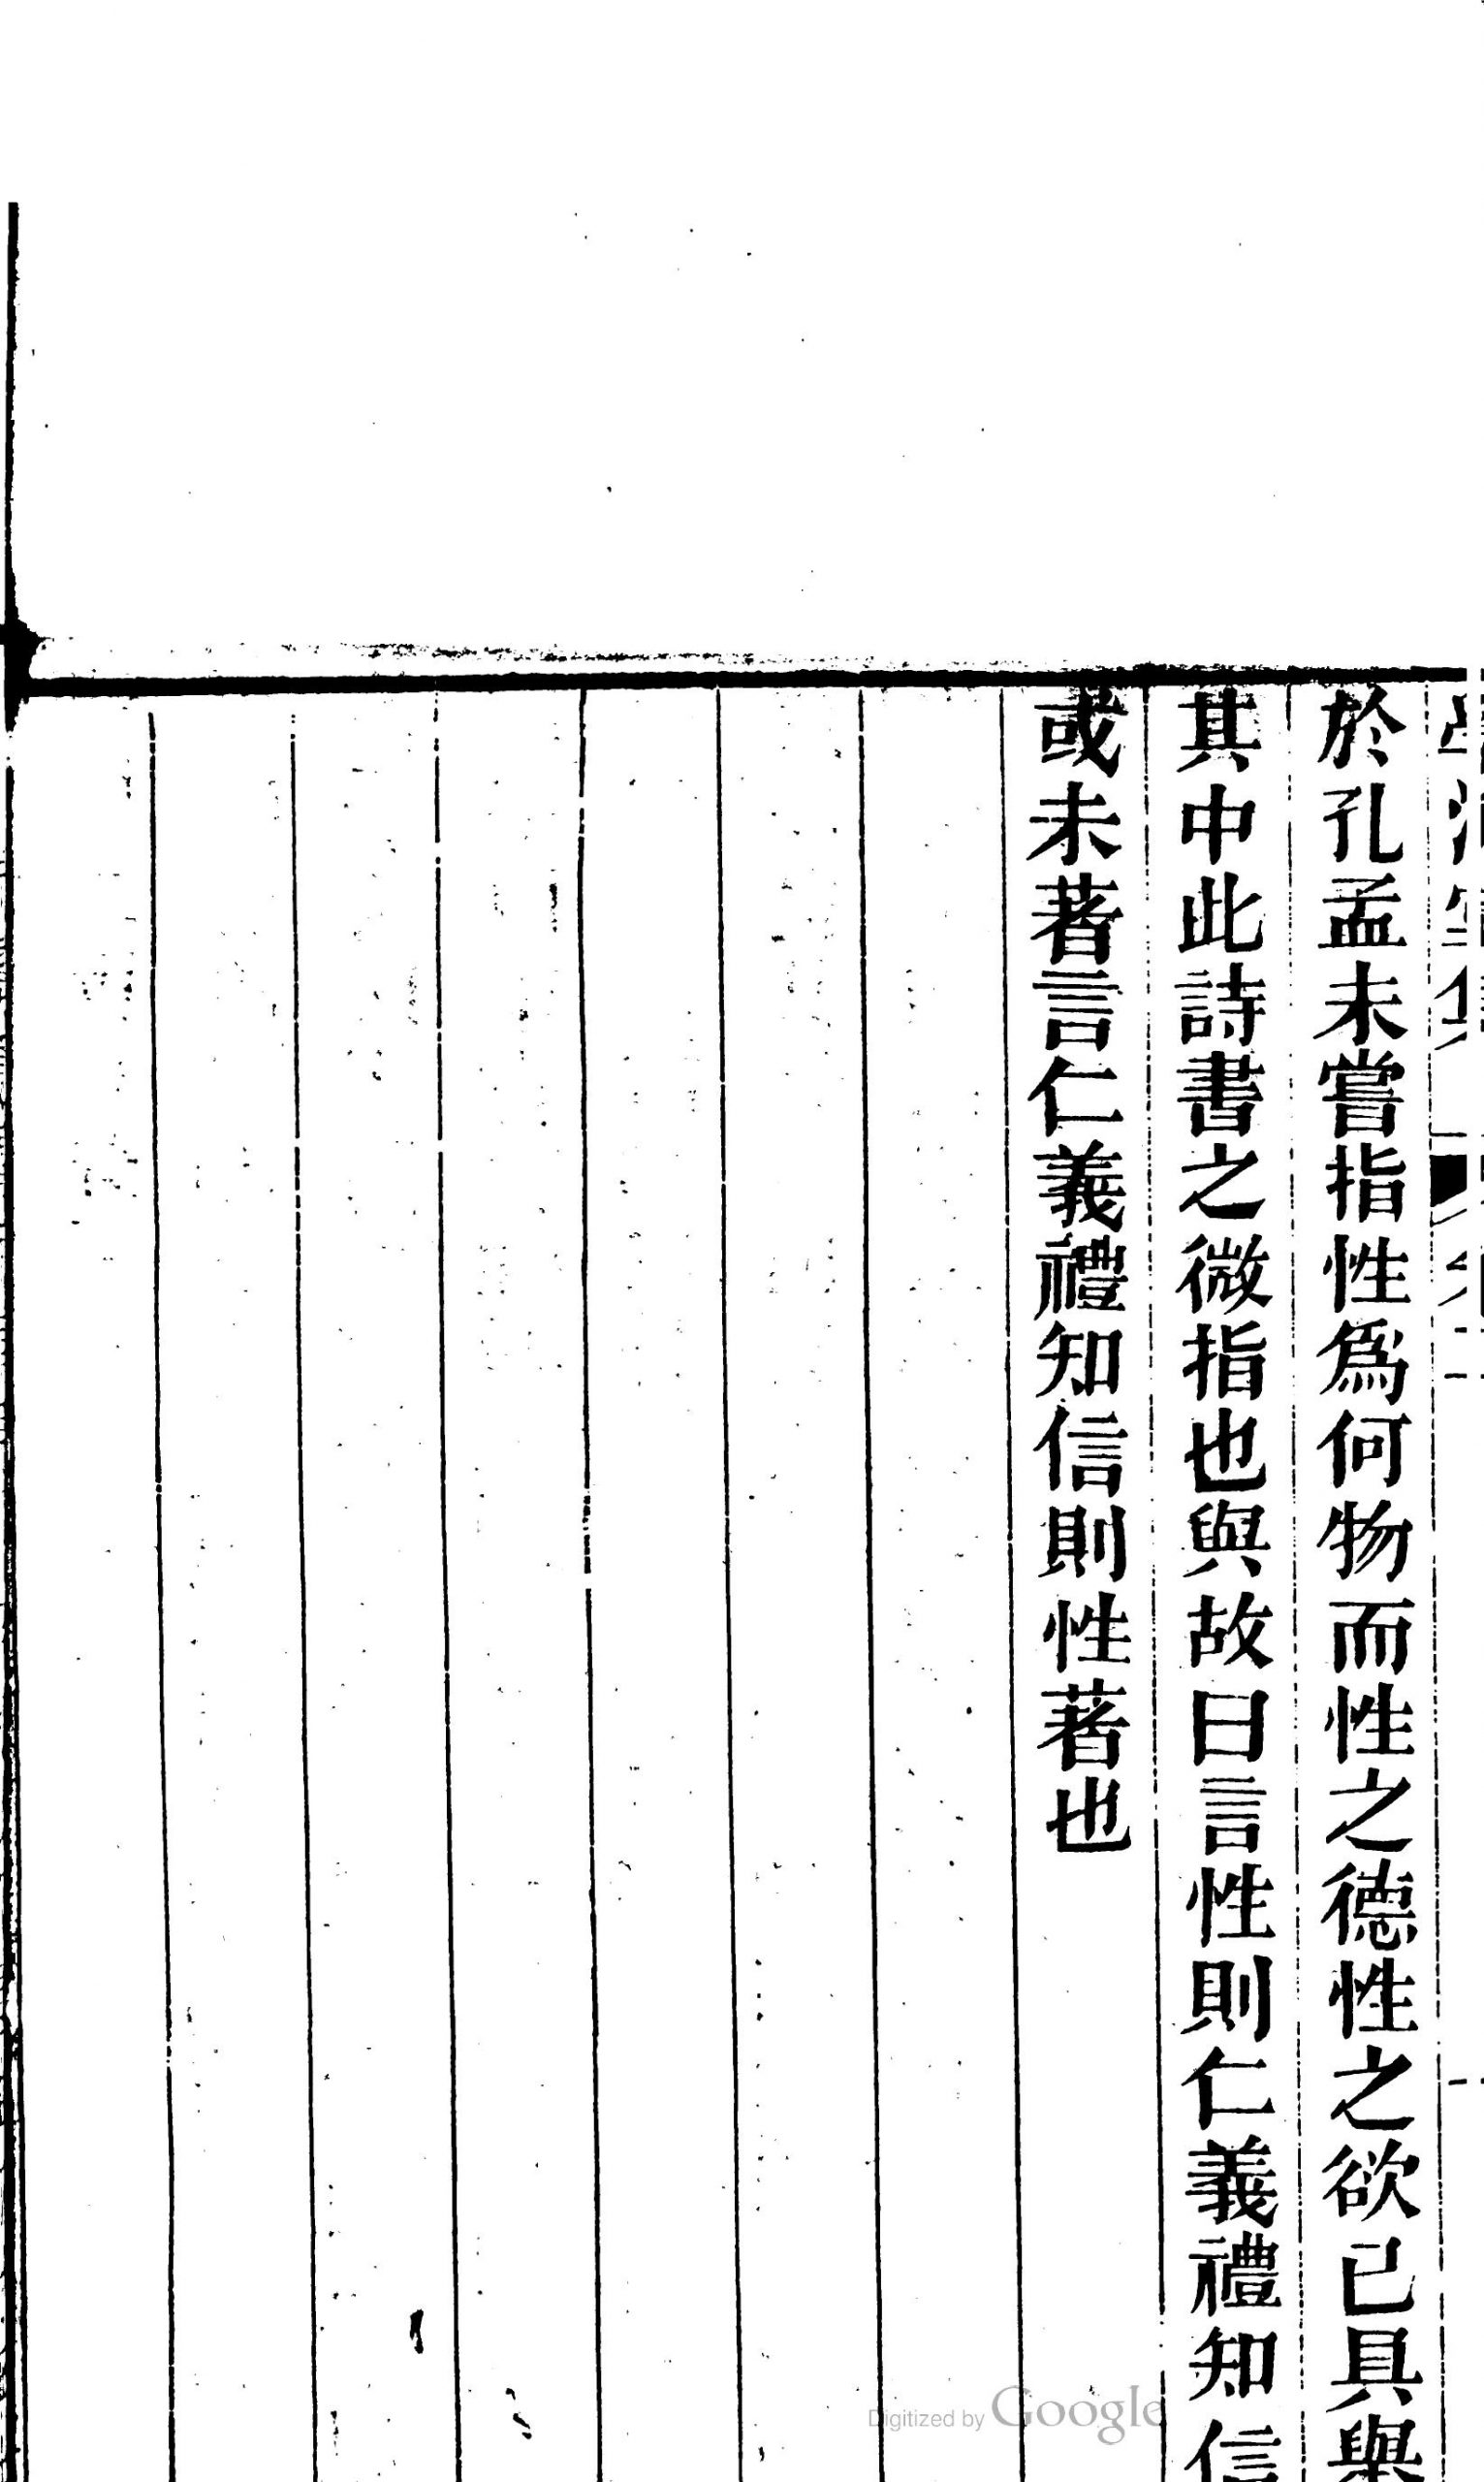 於孔孟未嘗指性爲何物而性之德性之欲已具與
其中此詩書之微指也與故曰言性則仁義禮知信
或未著言仁義禮知信則性著也
Digitized by Google